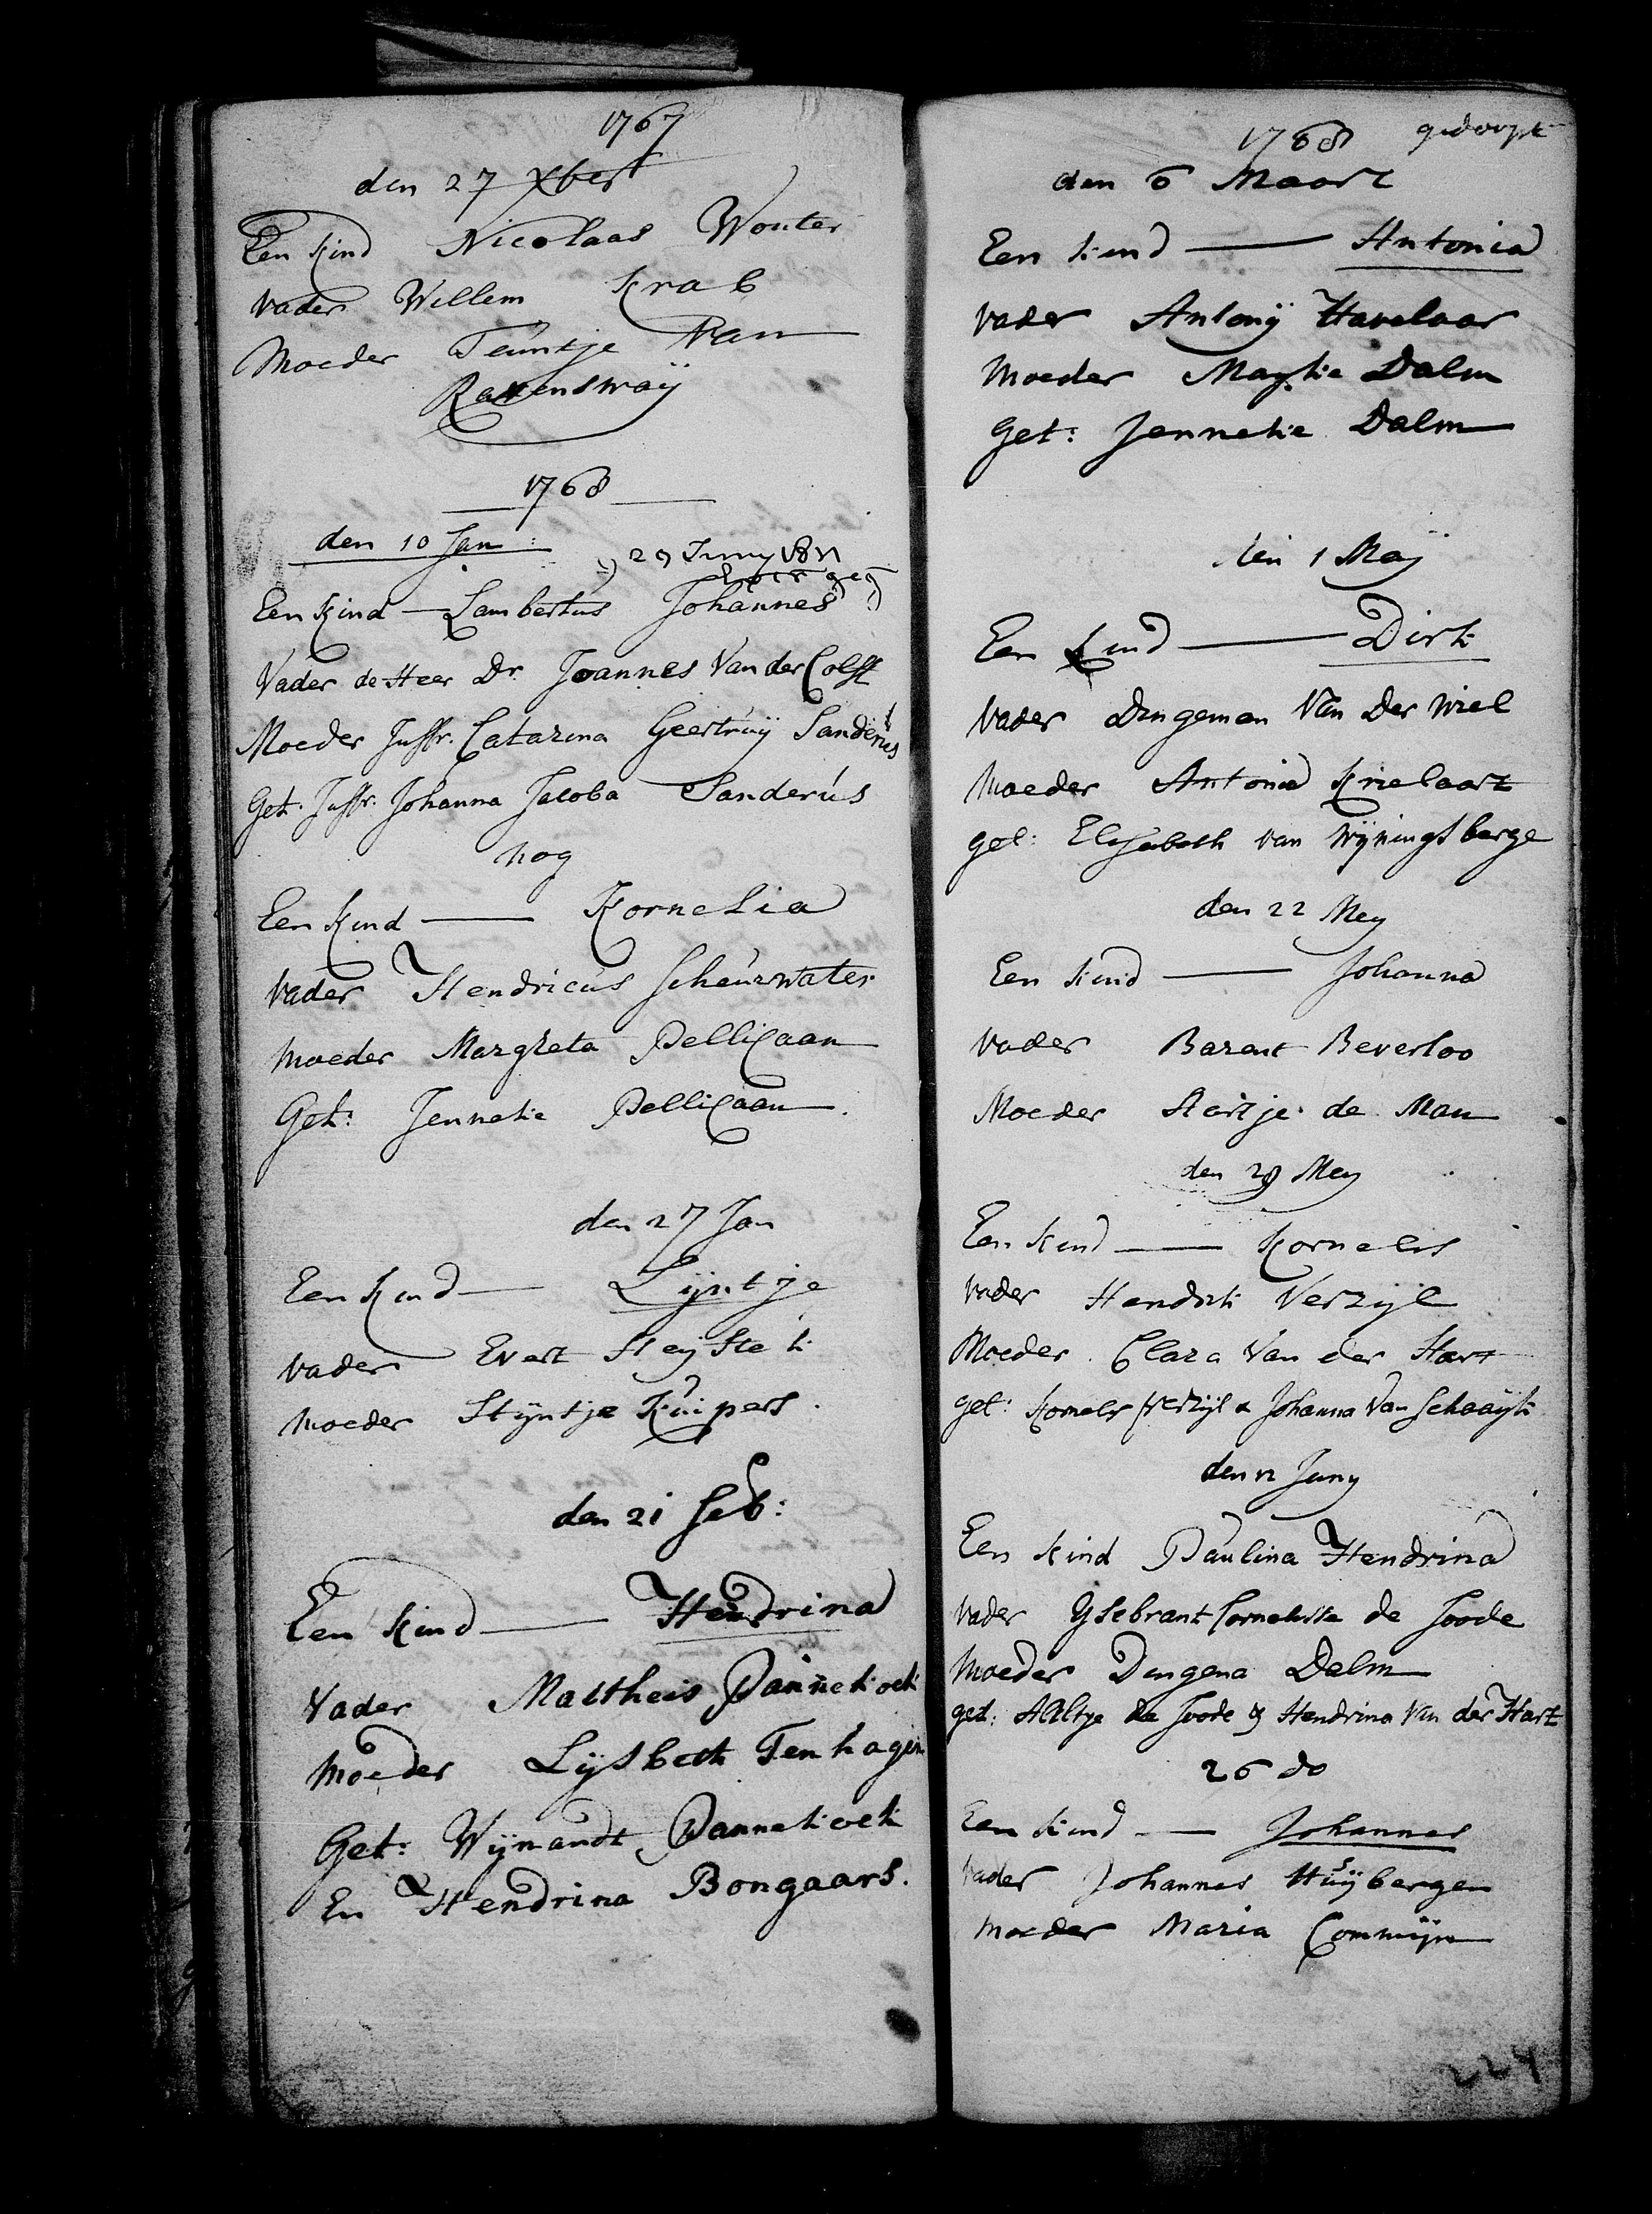 1767
den 27 Xber
Een kind Nicolaas Wouter
vader Willem Krab
Moeder Teuntje Van
Ravenswaÿ
1768
den 10 Jan:
29 Juny 1811
Een kind — Lambertus Johannes
Vader de Heer Dr. Joannes Van der Colff
Moeder Juffr. Catarina Geertruÿ Sanderus
Get. Juffr. Johanna Jacoba Sanderus
nog
Een kind — Kornelia
Vader Hendricus Scheurwater
Moeder Margreta Pellicaan
Get: Jenneke Pellicaan.
den 27 Jan
Een kind — Lijntje
vader Evert Heystek
moeder Stijntje Kuipers.
den 21 Feb:
Een kind — Hendrina
Vader Mattheis Pannekoek
Moeder Lijsbeth Tenhagen
Get: Wijnandt Pannekoek
En Hendrina Bongaars.
1768 gedoopt
den 6 Maart
Een kind — Antonia
vader Antonÿ Havelaar
Moeder Maghie Dalm
Get: Jenneke Dalm
den 1 Maÿ
Een kind — Dirk
Vader Dingeman Van Der Wiel
Moeder Antonia Krielaart
get: Elisabeth van Wijningsberge
den 22 Mey
Een kind — Johanna
Vader Barent Beverloo
Moeder Aartje de Man
den 29 Mey
Een kind — Kornelis
Vader Hendrik Verzijl
Moeder Clara Van der Hart
get: Kornelis Verzijl & Johanna Van Schaaijk
den 12 Juny
Een kind Paulina Hendrina
Vader Ysebrant Cornelisse de Joode
Moeder Dingena Dalm
get: Aaltje De Joode & Hendrina Van der Hart
26 do
Een kind — Johannes
Vader Johannes Huÿbergen
Moeder Maria Commijn
224